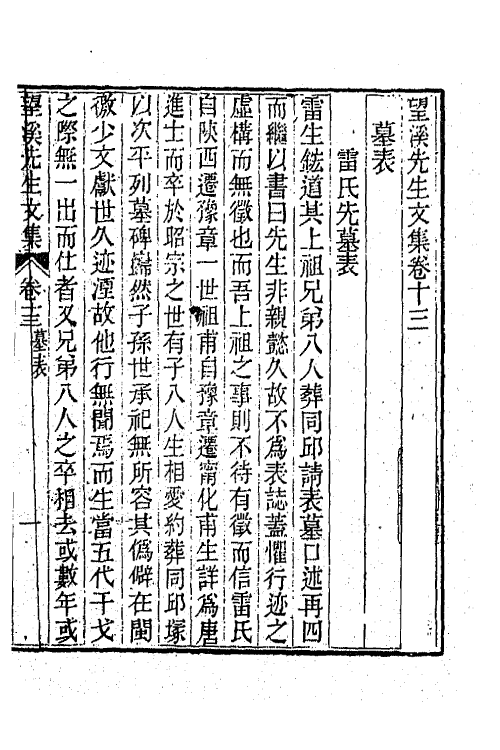 望溪先生文集卷十三
墓表
雷氏先墓表
雷生鋐道其上祖兄弟八人葬同邱請表墓口述再四
而繼以書曰先生非親懿久故不為表誌蓋懼行迹之
虛構而無徵也而吾上祖之事則不待有徵而信雷氏
自陝西遷豫章一世祖甫自豫章遷甯化甫生詳為唐
進士而卒於昭宗之世有子八人生相愛約葬同邱塚
以次平列墓碑巋然子孫世承祀無所容其偽僻在閩
微少文獻世久迹湮故他行無聞焉而生當五代干戈
之際無一出而仕者又兄弟八人之卒相去或數年或
望溪先生文集 卷十三 墓表 一